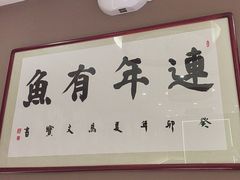 連年有魚
癸卯年夏馬文寶書